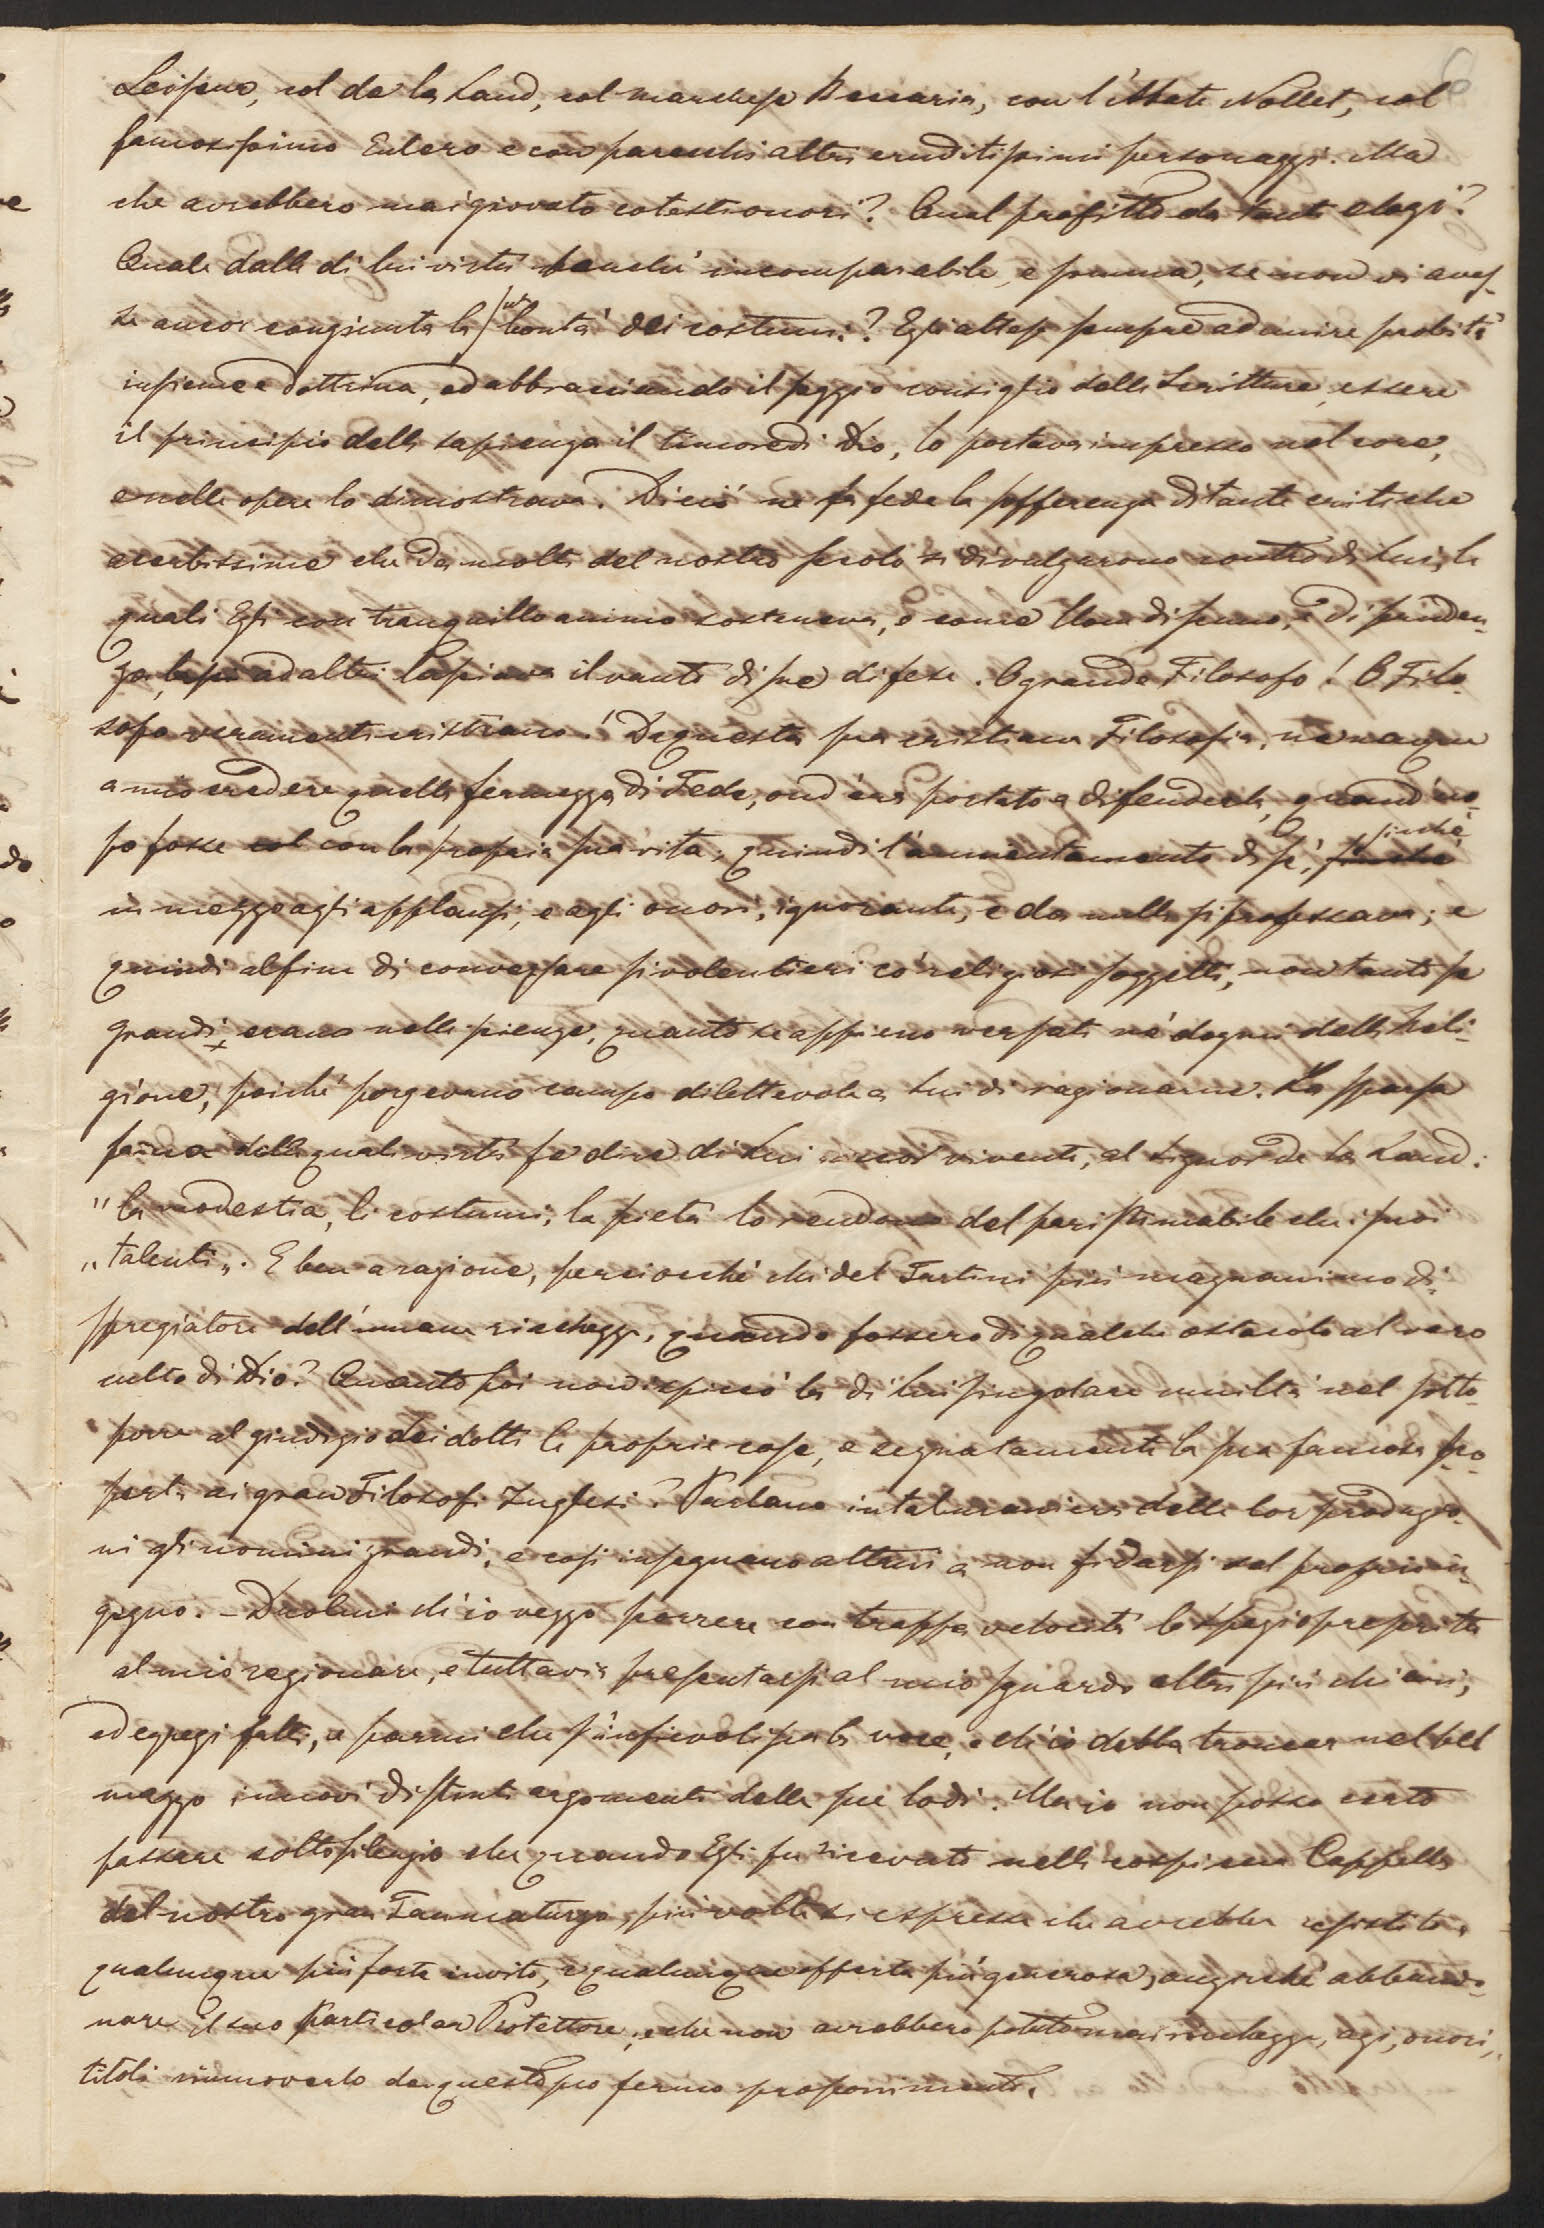 col de la Land, col marchese Beccaria, con l'Abate Nollet, col
famosissimo Eulero e con parecchi altri eruditissimi personaggi. Ma
che avrebbero mai giovato cotesti onori? Qual profitto da tanti elogi?
Quale dalle di lui virtù benchè incomparabile, e somma, se non vi aves-
se ancor congiunta la bontà dei costumi? Egli attese sempre ad unire probità
insieme e dottrina, ed abbracciando il saggio consiglio delle Scritture, essere
il principio della sapienza il timore di Dio, lo portava impresso nel core,
e nelle opere lo dimostrava. Di ciò ne fa fede la sofferenza di tante critiche
acerbissime che da molti del nostro secolo si divulgarono contro di Lui, le
quali Egli con tranquillo animo sosteneva, e come Uom di senno, e di pruden-
za, ad altri lasciava il vanto di sue difese. O grande Filosofo! O Filo-
sofo veramente cristiano! Da questa sua cristiana Filosofia, ne nacque
a mio credere quella fermezza di Fede, ond'era portato a difenderla, quand'uo-
po fosse col con la propria sua vita; quindi l'annientamento di sè, sicchè
in mezzo agli applausi, e agli onori, ignorante, e da nulla si professava; e
quindi alfine di conversare sì volentieri co' religiosi soggetti, non tanto se
grandi erano nelle scienze, quanto se appieno versati ne' dogmi della Reli-
gione, poichè porgevano campo dilettevole a Lui di ragionarne. La sparsa
fama delle quali virtù fe dire di Lui ancor vivente, al Signor de la Land:
"la modestia, li costumi, la pietà lo rendono del pari stimabile che i suoi
"talenti". E ben a ragione, perciocchè chi del Tartini più magnanimo di-
spregiatore dell'umane ricchezze, quando fossero di qualche ostacolo al vero
culto di Dio? Quanto poi non ispiccò la di lui singolare umiltà nel sotto-
porre al giudizio dei dotti le proprie cose, e segnatamente la sua famosa pro-
posta ai gran Filosofi Inglesi? Parlano in tal maniera delle lor produzio-
ni gli uomini grandi, e così insegnano altrui a non fidarsi del proprio in-
gegno. - Duolmi ch'io veggo correre con troppa velocità lo spazio prescritto
al mio ragionare, e tuttavia presentarsi al mio sguardo altri più chiari,
ed egregi fatti, e parmi che s'infievolisca la voce, e ch'io debba troncar nel bel
mezzo i nuovi distinti argomenti delle sue lodi. Ma io non posso certo
passare sotto silenzio che quando Egli fu ricevuto nella cospicua Cappella
del nostro gran Taumaturgo, più volte si espresse che avrebbe resistito a
qualunque più forte invito, e qualunque offerta più generosa, anzichè abbando-
nare il suo particolar Protettore, e che non avrebbero potuto mai ricchezze, agi, onori,
titoli rimuoverlo da questo suo fermo proponimento.